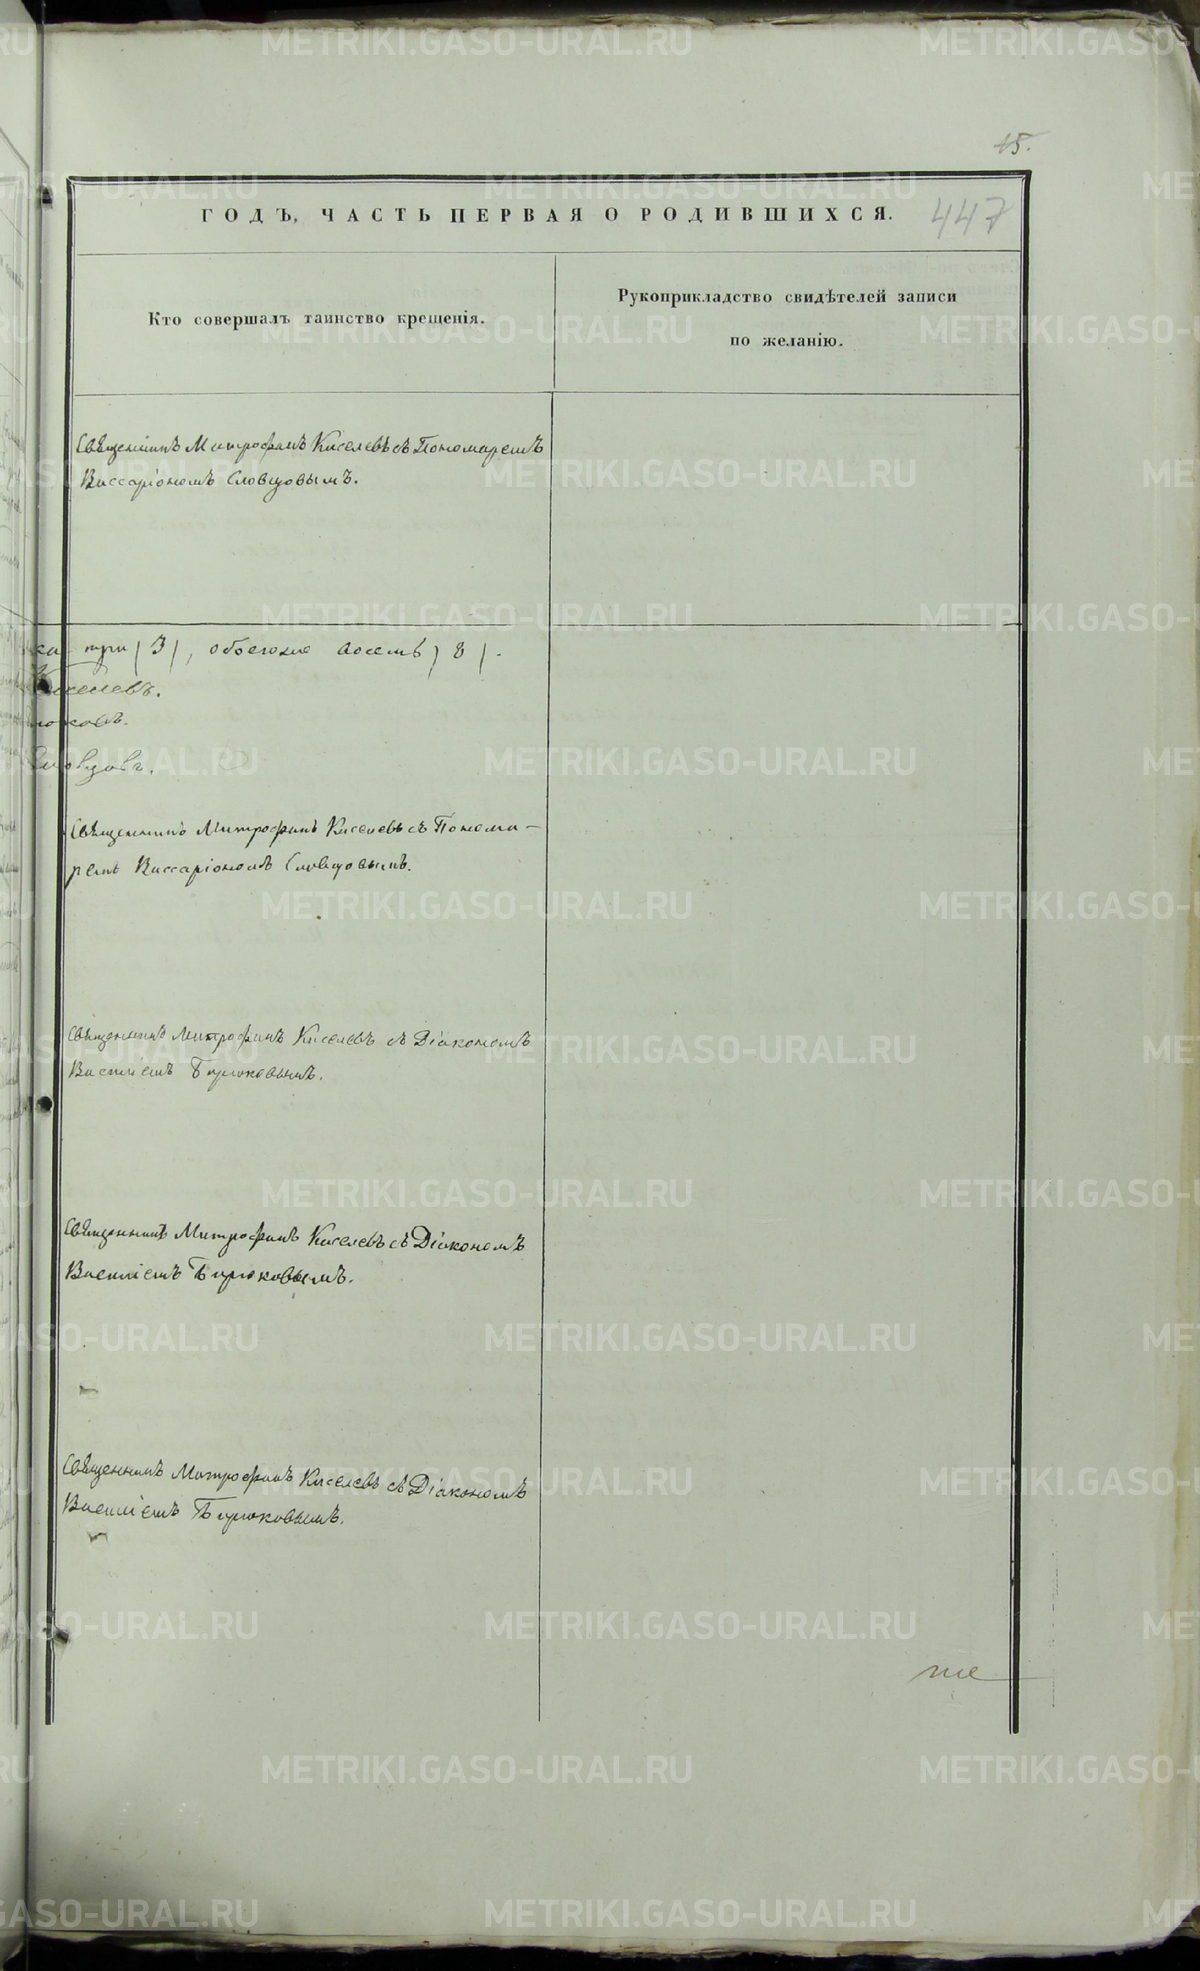 15.
ГОДЪ, ЧАСТЬ ПЕРВАЯ О РОДИВШИХСЯ.
447
Кто совершалъ таинство крещенія.
Рукоприкладство свидѣтелей записи
по желанію.
Священникъ Митрофанъ Киселевъ съ Пономаремъ
Виссаріономъ Словцовымъ.
три (3), обоегоже восемь (8).
Киселевъ.
Словцовъ.
Священникъ Митрофанъ Киселевъ съ Понома-
ремъ Виссаріономъ Словцовымъ.
Священникъ Митрофанъ Киселевъ съ Діакономъ
Василіемъ Бирюковымъ.
Священникъ Митрофанъ Киселевъ съ Діакономъ
Василіемъ Бирюковымъ.
Священникъ Митрофанъ Киселевъ съ Діакономъ
Василіемъ Бирюковымъ.
METRIKI.GASO-URAL.RU